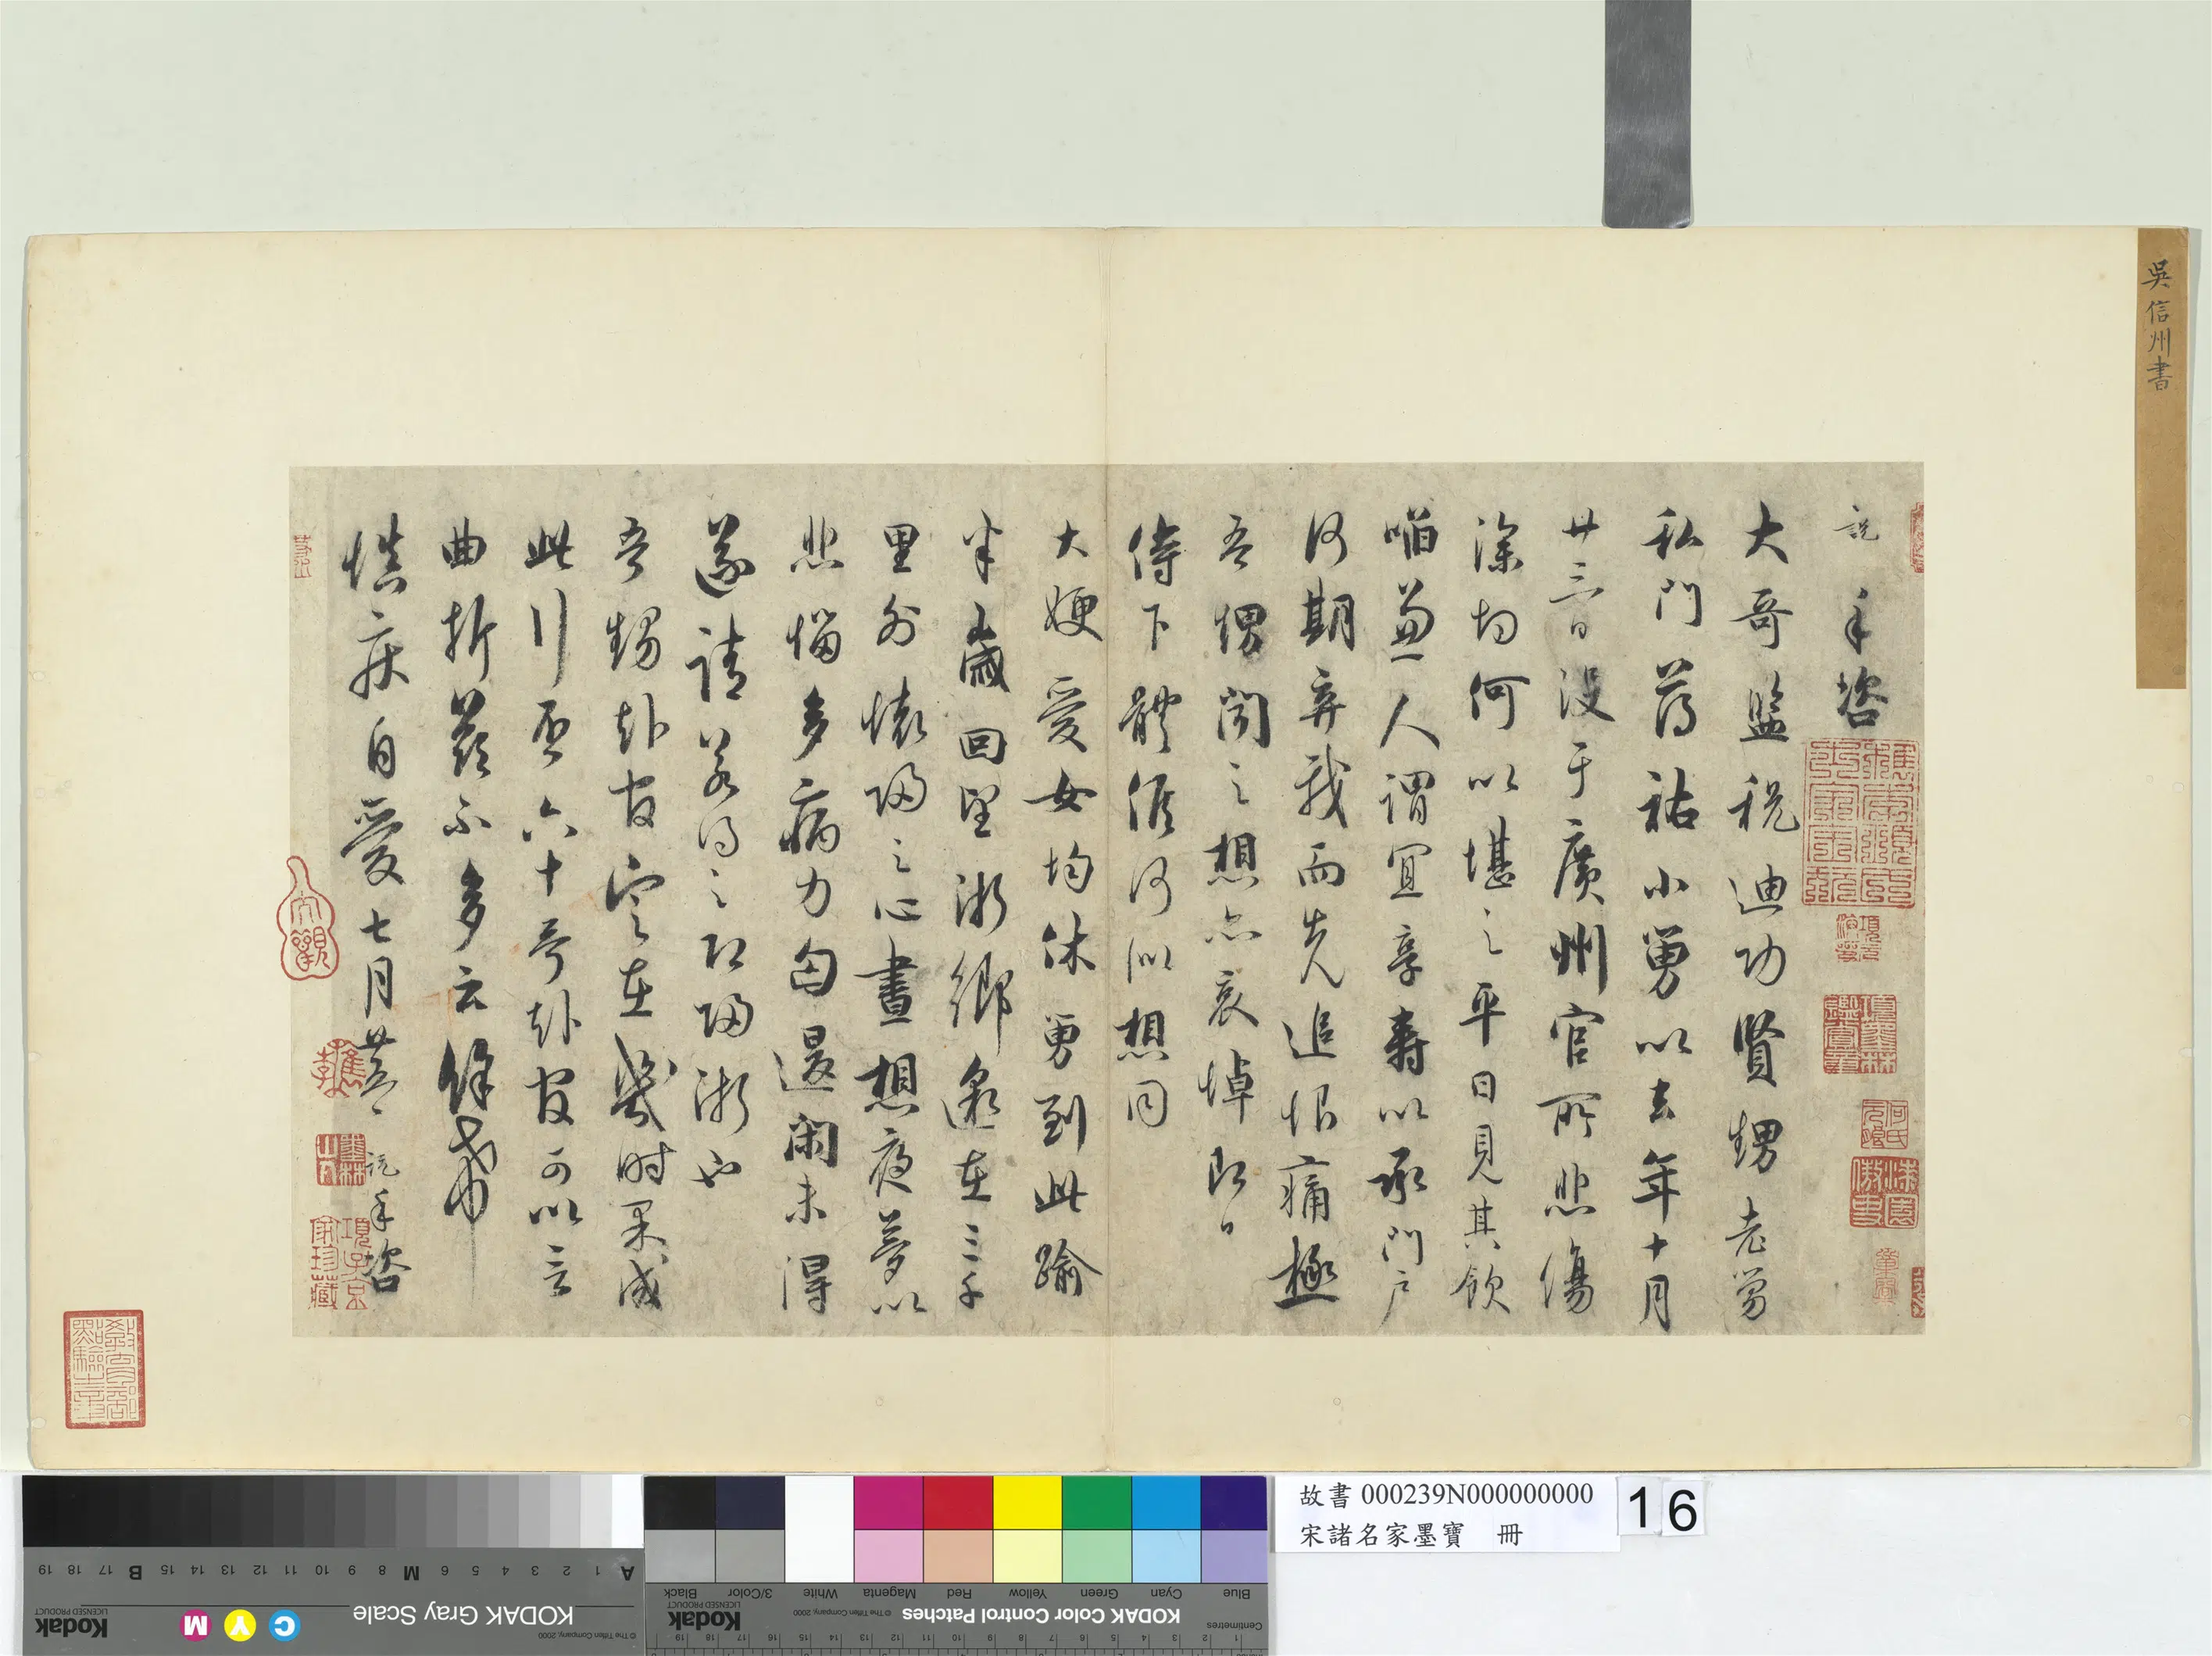 吳信州書
說手咨
大哥監稅迪功賢甥老舅
私門荐祐小舅以去年十月
廿三日没于廣州官所悲傷
深切何何以堪之平日見其飲
啗兼人謂宜享壽以承門戶
何期弃我而先追恨痛極
吾甥聞之想亦哀悼即日
侍下體候何似想同
大娘愛女均休舅到此踰
半歲回望浙鄉邈在三千
里外懷歸之心晝想夜夢以
悲惱多病力匃還闲未得
遂請若得之即歸浙也
吾甥赴官定在幾時果成
此行否六十哥赴官可以言
曲折茲不多云餘希
慎疾自愛七月廿 說手咨
故書 000239N000000000
宋諸名家墨寶 冊
16
KODAK Gray Scale
C Y M
Kodak
LICENSED PRODUCT
© The Tiffen Company, 2000
A 1 2 3 4 5 6 M 8 9 10 11 12 13 14 15 B 17 18 19
Blue Cyan Green Yellow Red Magenta White 3/Color Black
KODAK Color Control Patches
© The Tiffen Company, 2000
Kodak
LICENSED PRODUCT
Centimetres